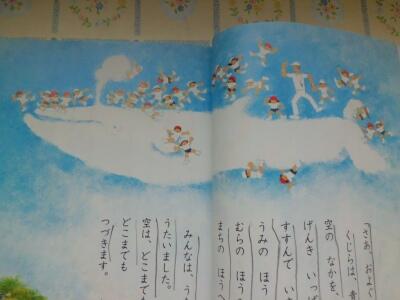 「さあ、およ
くじらは、青
空の なかを、
げんき いっ
すすんで い
うみの ほう
むらの ほう
まちの ほうへ
みんなは、う
うたいました。
空は、どこまで
どこまでも
つづきます。